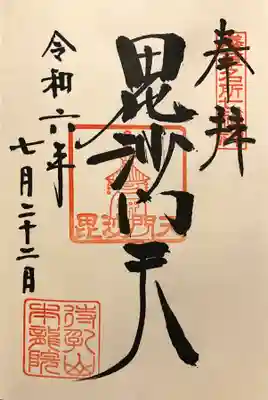 奉拝
毘沙門天
毘沙門天
令和六年
七月二十二日
待乳山
本龍院